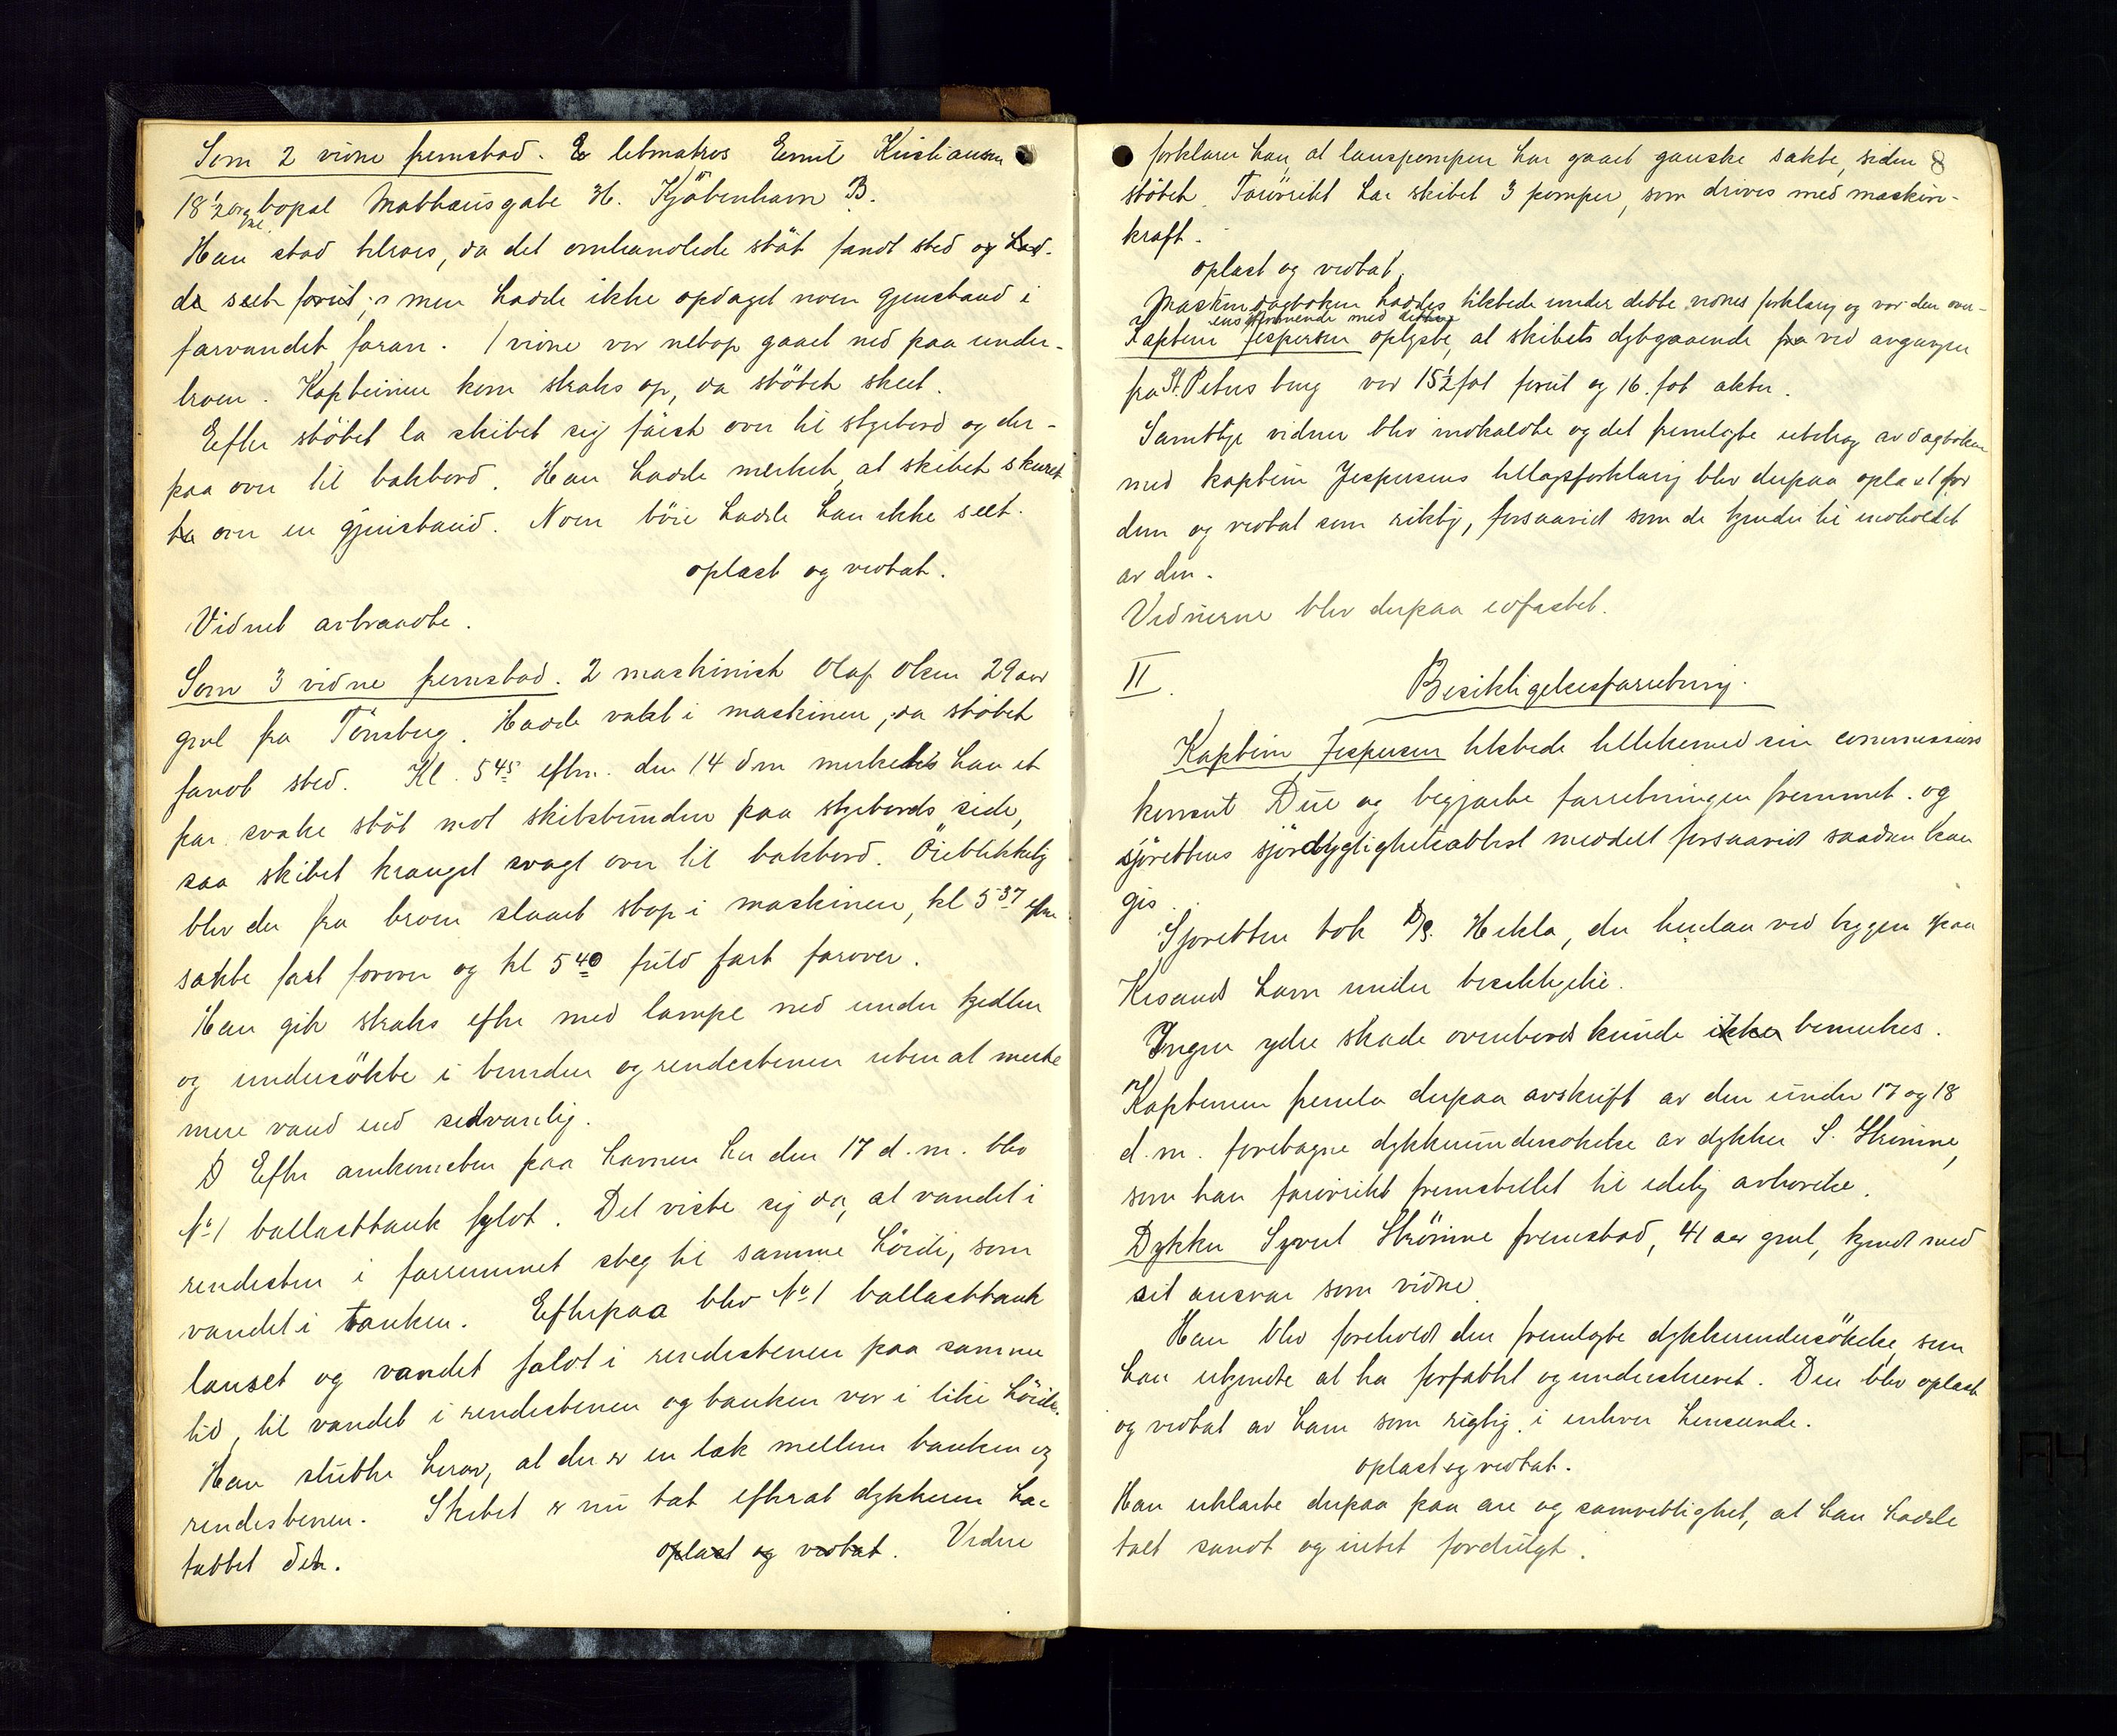 Som 2 vidne fremstod. letmatros Emil Kristiansen
18 1/2 bopæl Matthæusgade 36. Kjöbenhavn B.
Han stod tilrors, da det omhandlede stöt fandt sted og had-
de seet forut, men hadde ikke opdaget noen gjenstand i
farvandet foran. 1 vidne var netop gaaet ned paa under-
broen. Kapteinen kom straks op, da stötet skeet.
Efter stötet la skibet sig först over til styrbord og der-
paa over til bakbord. Han hadde merket, at skibet skuret
over en gjenstand. Noen böie hadde han ikke seet.
oplæst og vedtat.
Vidnet avtraadte.
Som 3 vidne fremstod. 2 maskinist Olaf Olsen 29 aar
gml fra Tönsberg. Hadde vakt i maskinen, da stötet
fandt sted. Kl. 5 45 eftm. den 14 dm merkedes han et
par svake stöt mot skibsbunden paa styrbords side,
saa skibet krænget svagt over til bakbord. Öieblikkelig
blev der fra broen slaaet stop i maskinen, kl 5 37 eftm
sakte fart forover og kl 5 40 fuld fart forover.
Han gik straks efter med lampe ned under kjedlen
og undersökte i bunden og rendestenen uten at merke
mere vand end sedvanlig.
Efter ankomsten paa havnen her den 17 d.m. blev
No 1 ballasttank fyldt. Det viste sig da, at vandet i
rendesten i forrummet steg til samme höide, som
vandet i tanken. Efterpaa blev No 1 ballasttank
lænset og vandet faldt i rendestenen paa samme
tid, til vandet i rendestenen og tanken var i like höide.
Han slutter herav, at der er en læk mellem tanken og
rendestenen. Skibet er nu tæt efterat dykkeren har
tættet det. oplæst og vedtat. Videre
forklarer han, at lænsepumpen har gaaet ganske sakte, siden 8
stötet. Forövrikt har skibet 3 pumper, som drives med maskin-
kraft.
oplæst og vedtat.
Maskindagboken haddes tilstede under dette vidnes forklaring og var den over-
ensstemmende med dette
Kaptein Jespersen oplyste, at skibets dybgaaende fra ved avgangen
fra St. Petersburg var 15 1/2 fot forut og 16. fot akter.
Samtlige vidner blev indkaldte og det fremlagte utdrag av dagboken
med kaptein Jespersens tillægsforklaring blev derpaa oplæst for
dem og vedtat som riktig, forsaavidt som de kjender til indholdet
av den.
Vidnerne blev derpaa edfæstet.
II. Besiktigelsesforretning.
Kaptein Jespersen tilstede tillikemed sin commissions
konsul Due og begjærte forretningen fremmet. og
sjörettens sjödygtighetsattest meddelt forsaavidt saadan kan
gis.
Sjöretten tok D/S. Hekla, der henlaa ved bryggen paa
Krsands havn under besiktigelse.
Ingen ydre skade ovenbords kunde ikke bemerkes.
Kapteinen fremla derpaa avskrift av den under 17 og 18
d.m. foretagne dykkerundersökelse av dykker S. Strömme,
som han forövrikt fremstillet til edelig avhörelse.
Dykker Syvert Strömme fremstod, 41 aar gml, kjendt med
sit ansvar som vidne
Han blev foreholdt den fremlagte dykkerundersökelse, som
han erkjendte at ha forfattet og underskrevet. Den blev oplæst
og vedtat av ham som rigtig i enhver henseende.
oplæst og vedtat.
Han erklærte derpaa paa ære og samvittighet, at han hadde
talt sandt og intet fordulgt.